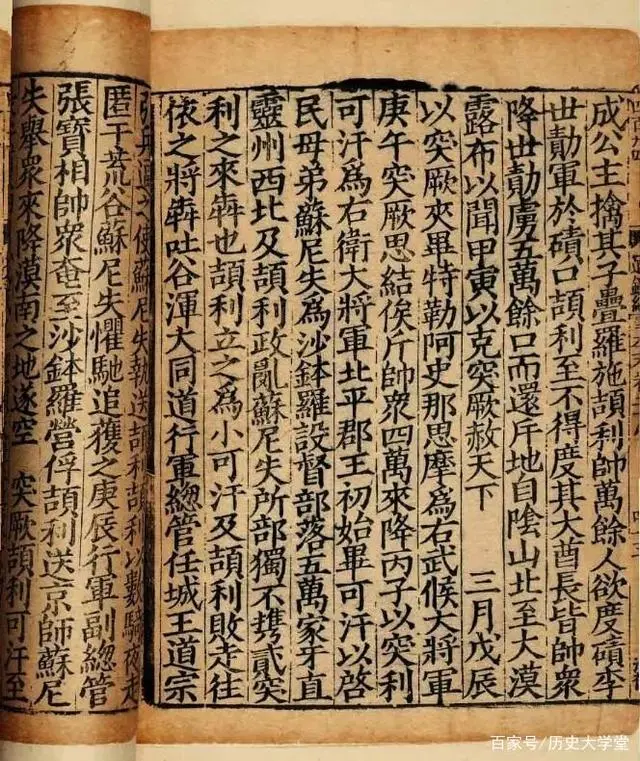 成公主擒其子疊羅施頡利帥萬餘人欲度磧李
世勣軍於磧口頡利至不得度其大酋長皆帥衆
降世勣虜五萬餘口而還斥地自陰山北至大漠
露布以聞甲寅以克突厥赦天下　三月戊辰
以突厥夾畢特勒阿史那思摩爲右武候大將軍
庚午突厥思結俟斤帥衆四萬來降丙子以突利
可汗爲右衛大將軍北平郡王初始畢可汗以啓
民母弟蘇尼失爲沙鉢羅設督部落五萬家牙直
靈州西北及頡利政亂蘇尼失所部獨不携貳突
利之來犇也頡利立之爲小可汗及頡利敗走往
依之將犇吐谷渾大同道行軍總管任城王道宗
引兵逼之使蘇尼失執送頡利頡利以數騎夜走
匿于荒谷蘇尼失懼馳追獲之庚辰行軍副總管
張寶相帥衆奄至沙鉢羅營俘頡利送京師蘇尼
失舉衆來降漠南之地遂空　突厥頡利可汗至
百家号/历史大学堂